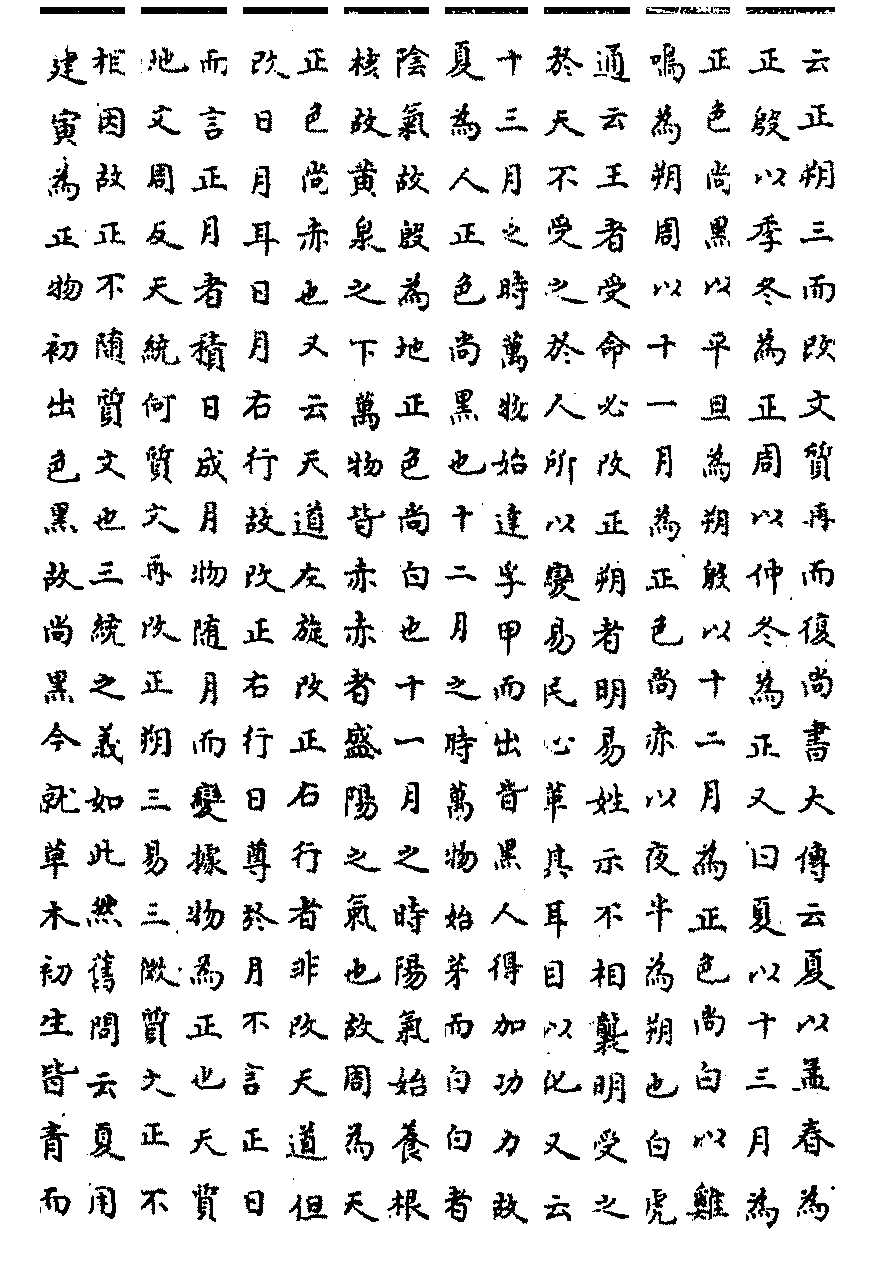 云正朔三而改文質再而復尚書大傳云夏以孟春為
正殷以季冬為正周以仲冬為正又曰夏以十三月為
正色尚黑以平旦為朔殷以十二月為正色尚白以雞
鳴為朔周以十一月為正色尚赤以夜半為朔也白虎
通云王者受命必改正朔者明易姓示不相襲明受之
於天不受之於人所以變易民心革其耳目以化又云
十三月之時萬物始達孚甲而出皆黑人得加功力故
夏為人正色尚黑也十二月之時萬物始芽而白白者
陰氣故殷為地正色尚白也十一月之時陽氣始養根
核故黃泉之下萬物皆赤赤者盛陽之氣也故周為天
正色尚赤也又云天道左旋改正右行者非改天道但
改日月耳日月右行故改正右行日尊於月不言正日
而言正月者積日成月物随月而變據物為正也天質
地文周反天統何質文再改正朔三易三微質文正不
相因故正不随質文也三統之義如此然舊問云夏用
建寅為正物初出色黑故尚黑今就草木初生皆青而